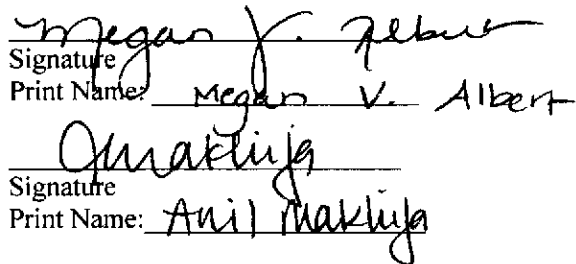 Megan V. Albert
Signature
Print Name: Megan V. Albert
AMakhija
Signature
Print Name: Anil Makhija